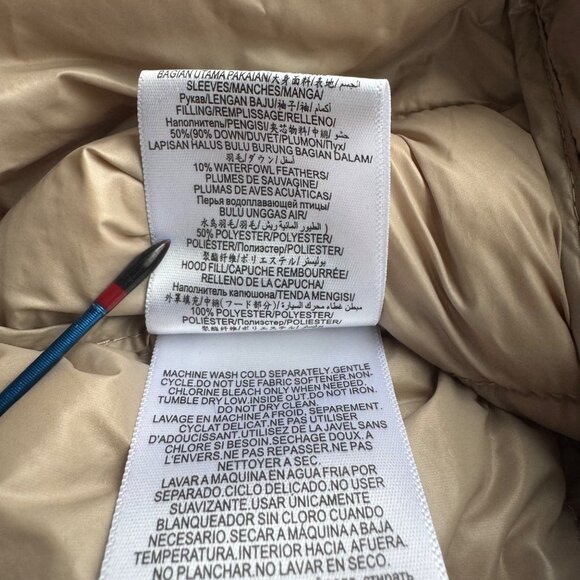 BAGIAN UTAMA PAKAIAN/大身面料/表地/الجسم/
SLEEVES/MANCHES/MANGA/
Рукав/LENGAN BAJU/袖子/袖/أكمام/
FILLING/REMPLISSAGE/RELLENO/
Наполнитель/PENGISI/夹芯物料/中綿/حشو
50%(90% DOWN/DUVET/PLUMON/Пух/
LAPISAN HALUS BULU BURUNG BAGIAN DALAM/
羽毛/ダウン/أسفل/
10% WATERFOWL FEATHERS/
PLUMES DE SAUVAGINE/
PLUMAS DE AVES ACUÁTICAS/
Перья водоплавающей птицы/
BULU UNGGAS AIR/
水鸟羽毛/羽毛/الطيور المائية ريش)
50% POLYESTER/POLYESTER/
POLIÉSTER/Полиэстер/POLIESTER/
聚酯纤维/ポリエステル/بوليستر/
HOOD FILL/CAPUCHE REMBOURRÉE/
RELLENO DE LA CAPUCHA/
Наполнитель капюшона/TENDA MENGISI/
外罩填充/中綿(フード部分)/مبطن غطاء محرك السيارة/
100% POLYESTER/POLYESTER/
POLIÉSTER/Полиэстер/POLIESTER/
聚酯纤维/ポリエステル/
MACHINE WASH COLD SEPARATELY.GENTLE
CYCLE.DO NOT USE FABRIC SOFTENER.NON-
CHLORINE BLEACH ONLY WHEN NEEDED.
TUMBLE DRY LOW.INSIDE OUT.DO NOT IRON.
DO NOT DRY CLEAN.
LAVAGE EN MACHINE A FROID, SEPAREMENT.
CYCLAT DELICAT.NE PAS UTILISER
D'ADOUCISSANT.UTILISEZ DE LA JAVEL SANS
CHLORE SI BESOIN.SECHAGE DOUX. A
L'ENVERS.NE PAS REPASSER.NE PAS
NETTOYER A SEC.
LAVAR A MAQUINA EN AGUA FRIA POR
SEPARADO.CICLO DELICADO.NO USER
SUAVIZANTE. USAR ÚNICAMENTE
BLANQUEADOR SIN CLORO CUANDO
NECESARIO.SECAR A MÁQUINA A BAJA
TEMPERATURA.INTERIOR HACIA AFUERA.
NO PLANCHAR. NO LAVAR EN SECO.